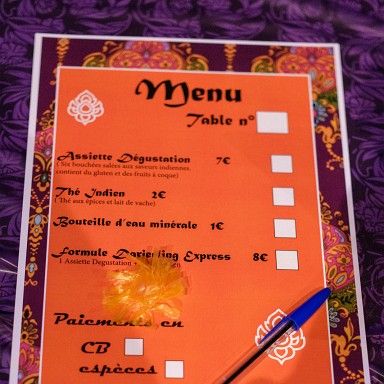 Menu
Table n°
Assiette Dégustation 7€
( Six bouchées salées aux saveurs indiennes
contient du gluten et des fruits à coque)
Thé Indien 2€
( Thé aux épices et lait de vache)
Bouteille d'eau minérale 1€
Formule Express 8€
1 Assiette Degustation
Paiements en
CB
espèces